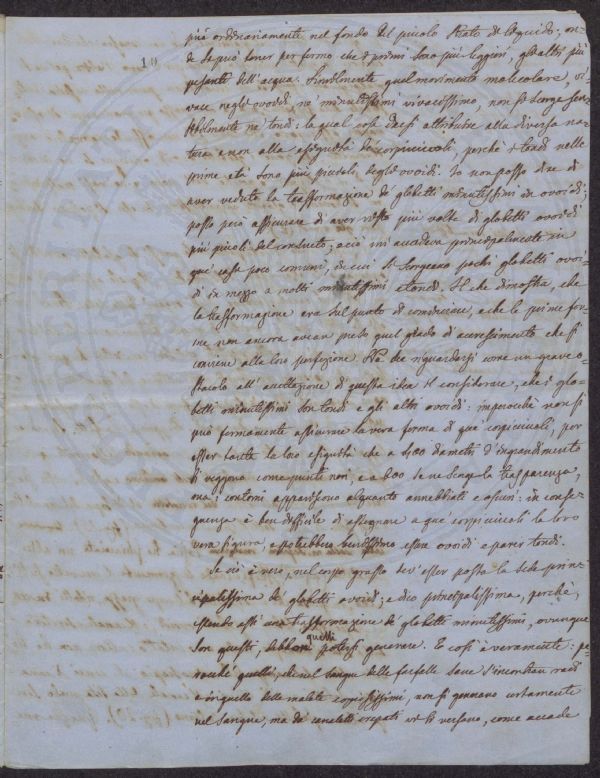 10
più ordinariamente nel fondo del piccolo strato di liquido; on-
de si può tener per fermo che i primi sono più leggieri, gli altri più
pesanti dell'acqua. Similmente quel movimento molecolare, vi-
vace negli ovoidi ne' minutissimi vivacissimo, non si scorge sen-
sibilmente ne' tondi: la qual cosa devesi attribuire alla diversa na-
tura e non alla esiguità de' corpiccioli, perchè i tondi nelle
prime età sono più piccoli degli ovoidi. Io non posso dire di
aver veduto la trasformazione de' globetti minutissimi in ovoidi;
posso però assicurare di aver visto più volte di globetti ovoidi
più piccoli del consueto; e ciò mi accadeva principalmente in
que' casi poco comuni, in cui si scorgeano pochi globetti ovoi-
di in mezzo a molti minutissimi e tondi. Il che dimostra, che
la trasformazione era sul punto di cominciare, e che le prime for-
me non ancora avean preso quel grado di accrescimento che si
conviene alla loro perfezione. Nè dee riguardarsi come un grave o-
stacolo all'accettazione di questa idea il considerare, che i glo-
betti minutissimi son tondi e gli altri ovoidi: imperocchè non si
può fermamente assicurare la vera forma di que' corpiccioli, per
esser tanta la loro esiguità che a 400 diametri d'ingrandimento
si veggono come punti neri, e a 800 se ne scorge la trasparenza,
ma i contorni appariscono alquanto annebbiati e oscuri: in conse-
guenza è ben difficile di assegnare a que' corpiccioli la loro
vera figura, e potrebbero benissimo essere ovoidi e parer tondi.
Se ciò è vero, nel corpo grasso dev'esser posta la sede prin-
cipalissima de' globetti ovoidi; e dico principalissima, perchè,
essendo essi una trasformazione de' globetti minutissimi, ovunque
son questi, debbono quelli potersi generare. E così è veramente: pe-
rocchè quelli, che nel sangue delle farfalle sane s'incontran radi
e in quello delle malate copiosissimi, non si generano certamente
nel sangue, ma da' canaletti crepati vi si versano, come accade